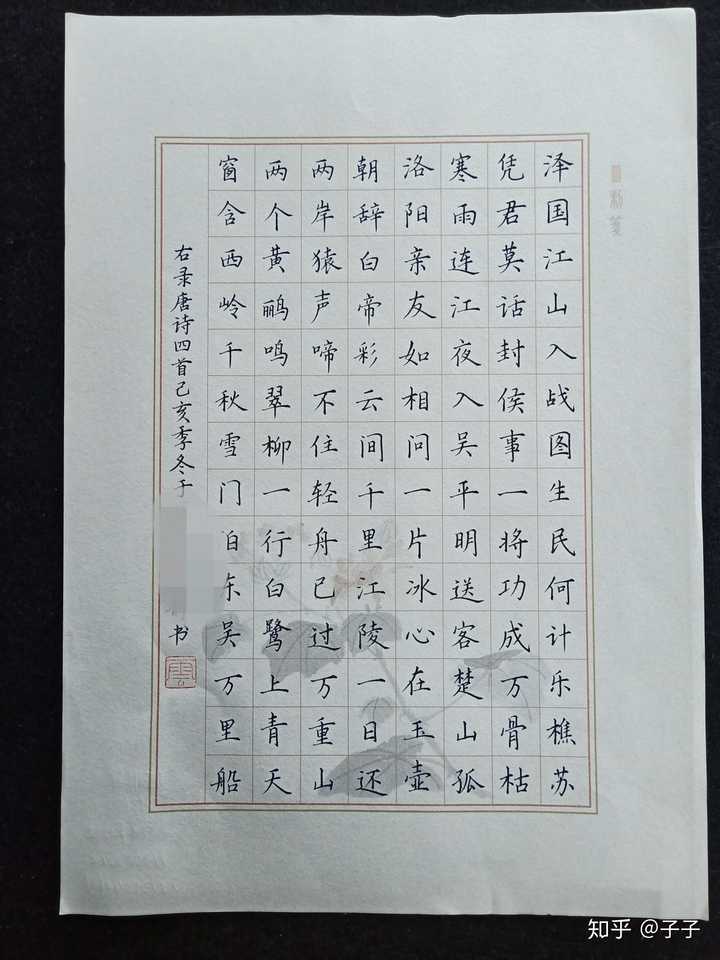 泽国江山入战图生民何计乐樵苏
凭君莫话封侯事一将功成万骨枯
寒雨连江夜入吴平明送客楚山孤
洛阳亲友如相问一片冰心在玉壶
朝辞白帝彩云间千里江陵一日还
两岸猿声啼不住轻舟已过万重山
两个黄鹂鸣翠柳一行白鹭上青天
窗含西岭千秋雪门泊东吴万里船
右录唐诗四首己亥季冬于
书
知乎 @子子